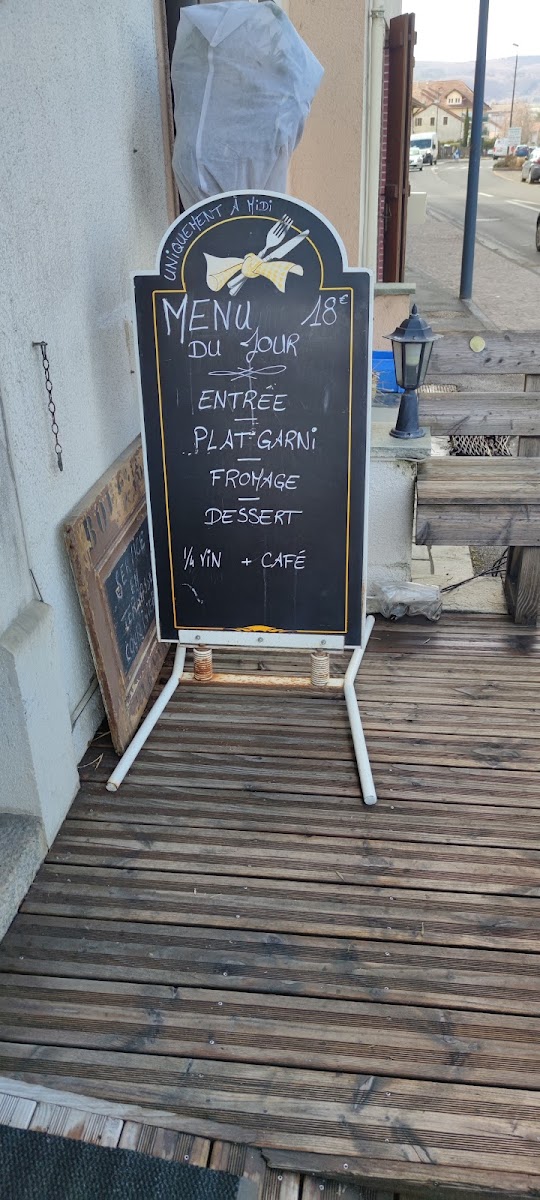 UNIQUEMENT À MIDI
MENU 18€
DU JOUR
ENTRÉE
PLAT GARNI
FROMAGE
DESSERT
1/4 VIN + CAFÉ